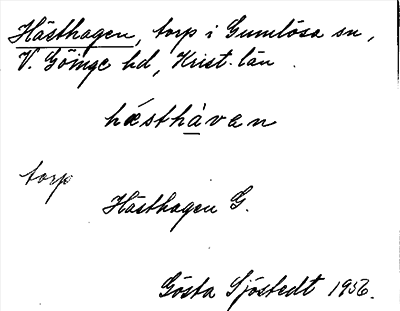 Hästhagen, torp i Gumlösa sn,
V. Göinge hd, Krist. län.
hæsthàvan
torp
Hästhagen G.
Gösta Sjöstedt 1956.